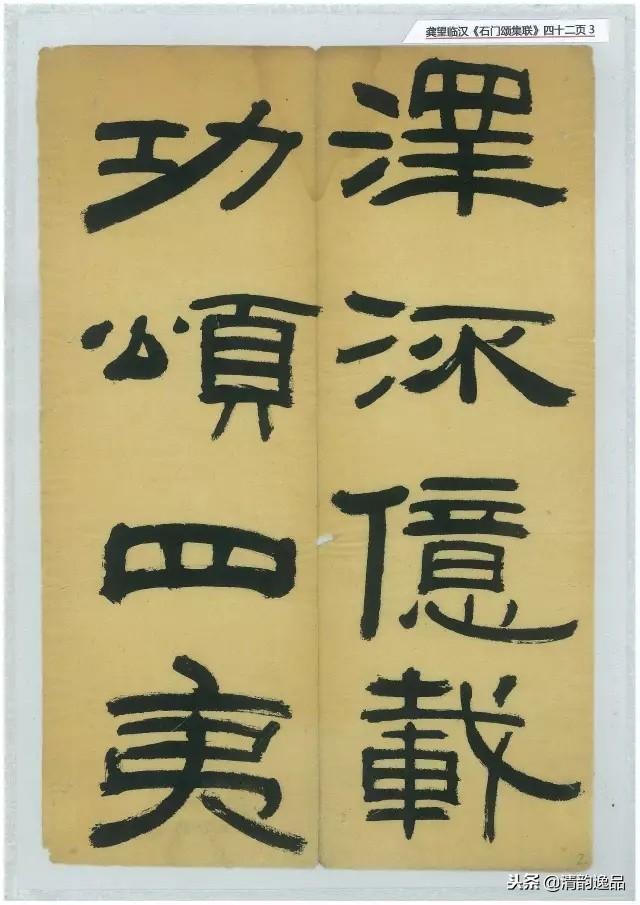 龚望临汉《石门颂集联》四十二页 3
澤流億載
功頌四夷
2.
头条 @清韵逸品